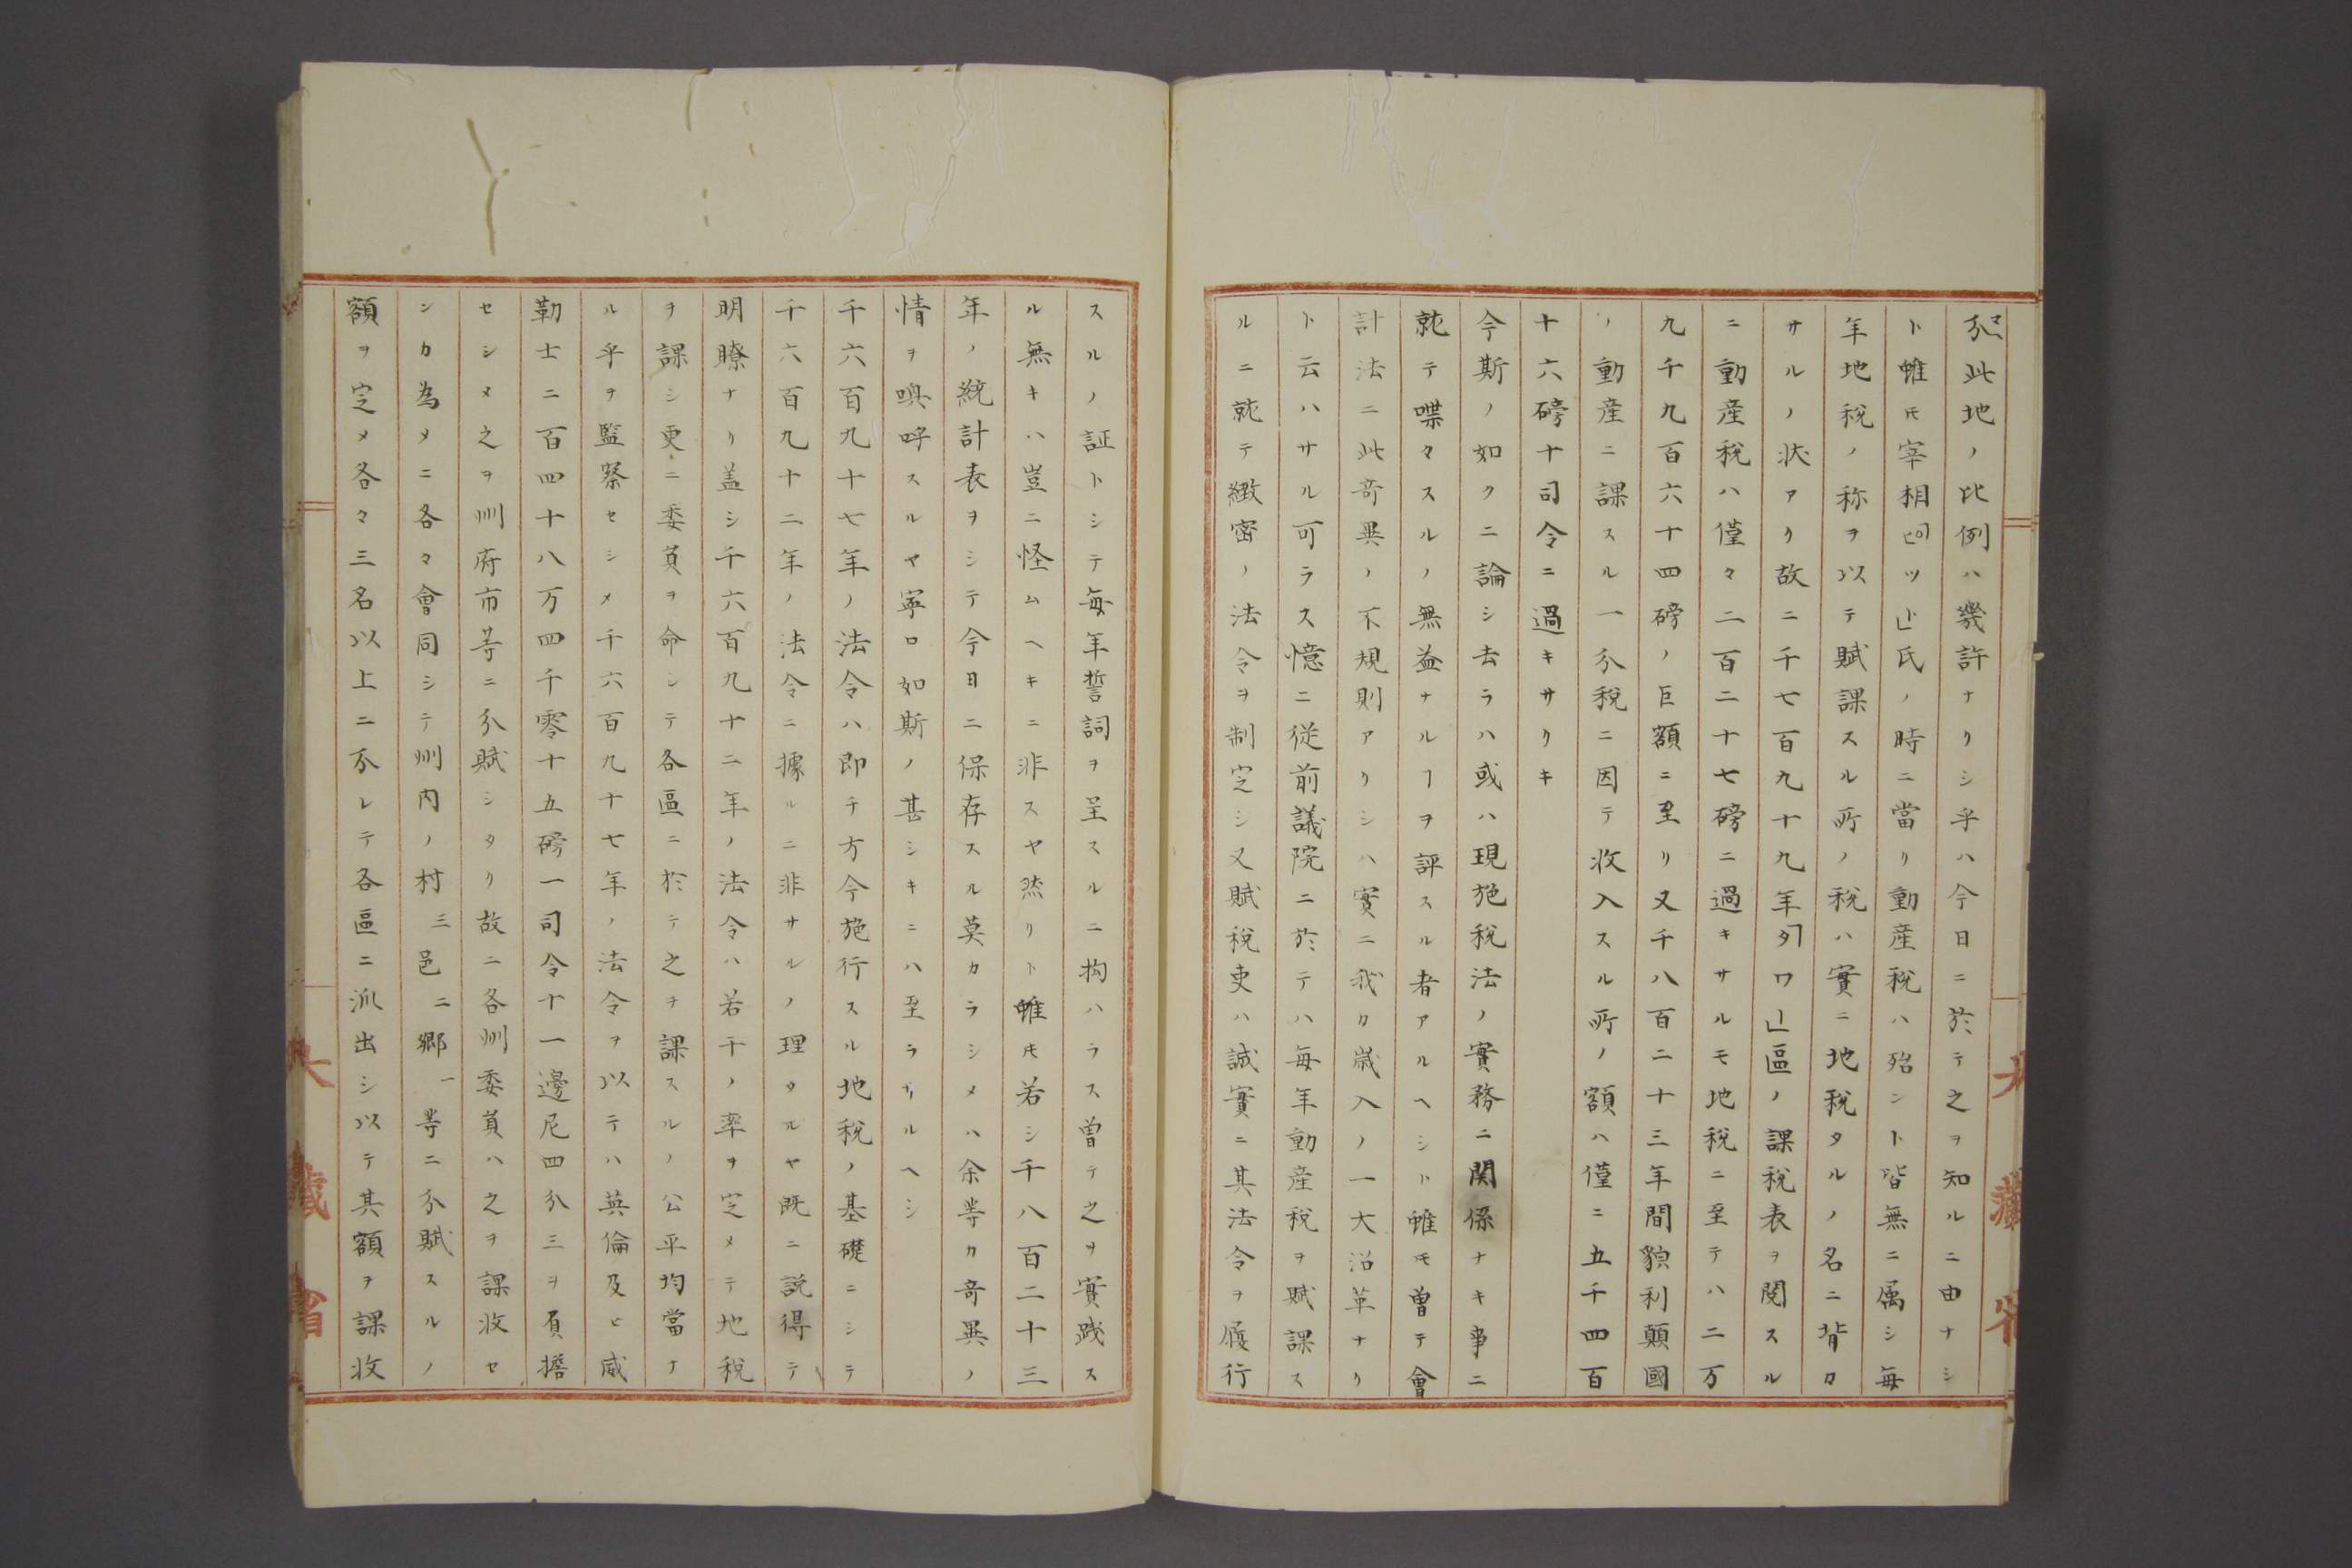 尒此地ノ比例ハ幾許ナリシ乎ハ今日ニ於テ之ヲ知ルニ由ナシ
ト雖モ宰相「ピット」氏ノ時ニ當リ動産税ハ殆ント皆無ニ属シ毎
年地税ノ称ヲ以テ賦課スル所ノ税ハ實ニ地税タルノ名ニ背カ
サルノ状アリ故ニ千七百九十九年「タワ」區ノ課税表ヲ閲スル
ニ動産税ハ僅々二百二十七磅ニ過キサルモ地税ニ至テハ二万
九千九百六十四磅ノ巨額ニ至リ又千八百二十三年間貌利顛國
ノ動産ニ課スル一分税ニ因テ收入スル所ノ額ハ僅ニ五千四百
十六磅十司令ニ過キサリキ
今斯ノ如クニ論シ去ラハ或ハ現施税法ノ實務ニ関係ナキ事ニ
就テ喋々スルノ無益ナルヿヲ評スル者アルヘシト雖モ曽テ會
計法ニ此奇異ノ不規則アリシハ實ニ我カ歳入ノ一大沿革ナリ
ト云ハサル可ラス憶ニ従前議院ニ於テハ毎年動産税ヲ賦課ス
ルニ就テ緻密ノ法令ヲ制定シ又賦税吏ハ誠實ニ其法令ヲ履行
スルノ証トシテ毎年誓詞ヲ呈スルニ拘ハラス曽テ之ヲ實践ス
ル無キハ豈ニ怪ムヘキニ非スヤ然リト雖モ若シ千八百二十三
年ノ統計表ヲシテ今日ニ保存スル莫カラシメハ余等カ奇異ノ
情ヲ喚呼スルヤ寧ロ如斯ノ甚シキニハ至ラサルヘシ
千六百九十七年ノ法令ハ即チ方今施行スル地税ノ基礎ニシテ
千六百九十二年ノ法令ニ據ルニ非サルノ理タルヤ既ニ説得テ
明瞭ナリ盖シ千六百九十二年ノ法令ハ若干ノ率ヲ定メテ地税
ヲ課シ更ニ委員ヲ命シテ各區ニ於テ之ヲ課スルノ公平均當ナ
ル乎ヲ監察セシメ千六百九十七年ノ法令ヲ以テハ英倫及ヒ威
勒士ニ百四十八万四千零十五磅一司令十一邊尼四分三ヲ負擔
セシメ之ヲ州府市等ニ分賦シタリ故ニ各州委員ハ之ヲ課收セ
ンカ為メニ各々會同シテ州内ノ村三邑二郷一等ニ分賦スルノ
額ヲ定メ各々三名以上ニ分レテ各區ニ派出シ以テ其額ヲ課收
大藏省